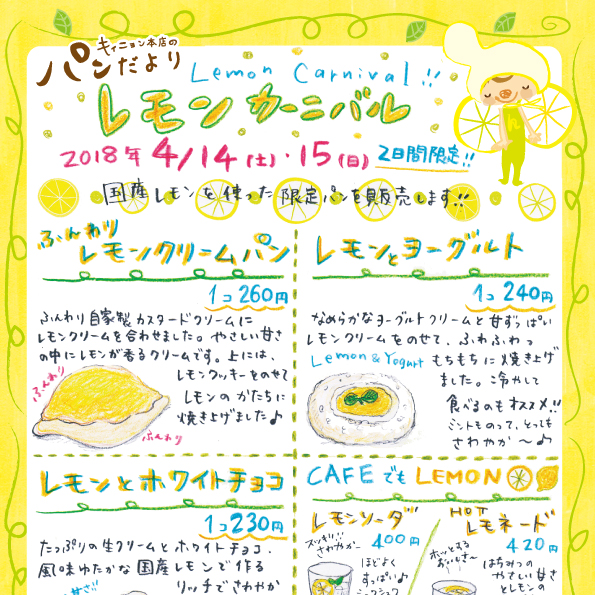 キィニョン本店の
パンだより
Lemon Carnival!!
レモンカーニバル
2018年 4/14(土)・15(日) 2日間限定!!
国産レモンを使った限定パンを販売します!!
ふんわり
レモンクリームパン
1コ260円
ふんわり自家製カスタードクリームに
レモンクリームを合わせました。やさしい甘さ
の中にレモンが香るクリームです。上には、
レモンクッキーをのせて
レモンのかたちに
焼き上げました♪
ふんわり
ふんわり
レモンとヨーグルト
1コ240円
なめらかなヨーグルトクリームと甘ずっぱい
レモンクリームをのせて、ふわふわっ
Lemon & Yogurt
もちもちに焼き上げ
ました。冷やして
食べるのもオススメ!!
ミントものって、とっても
さわやか〜♪
レモンとホワイトチョコ
1コ230円
たっぷりの生クリームとホワイトチョコ、
風味ゆたかな国産レモンで作る
リッチでさわやか
CAFEでもLEMON
レモンソーダ
400円
スッキリ!!
さわやか〜
ほどよく
すっぱい♪
HOT
レモネード
420円
ホッとする
おいしさ〜
はちみつの
やさしい甘さ
とレモンの